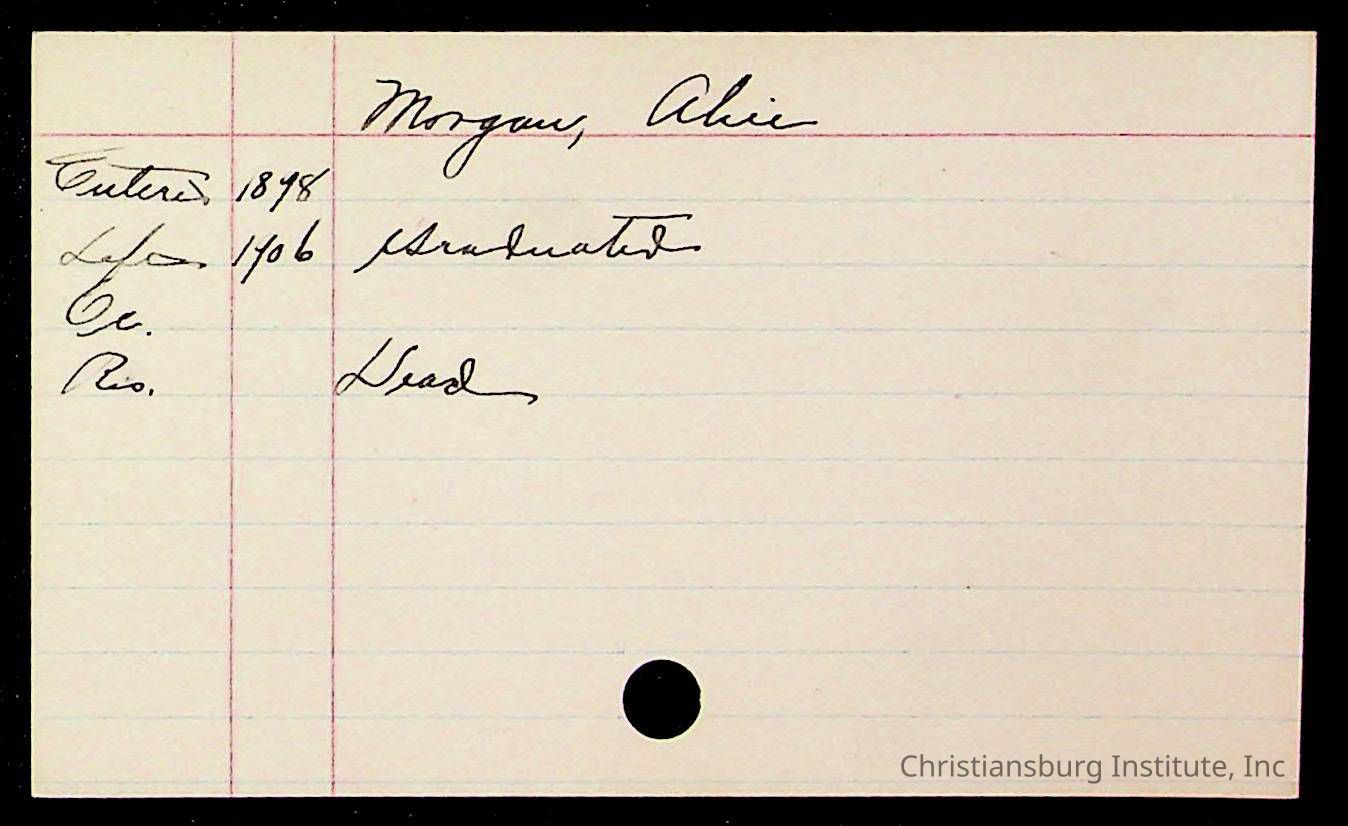 Morgan, Alice
Entered 1898
Left 1906 Graduated
Oc.
Res. Dead
Christiansburg Institute, Inc